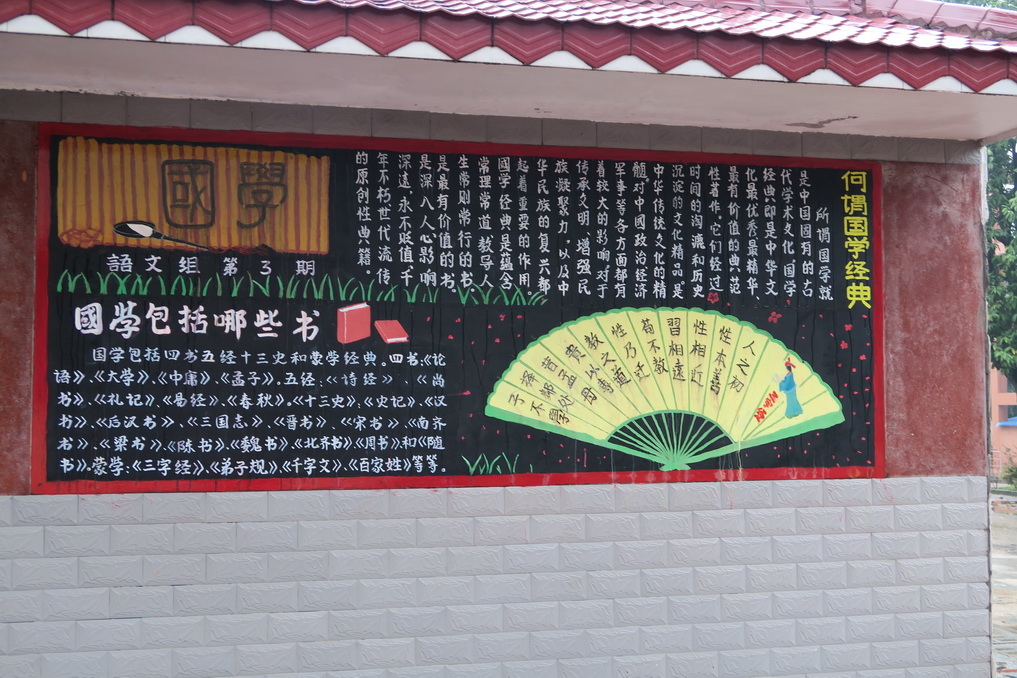 國學
語文组 第3期
何谓国学经典
所谓国学就
是中国固有的古
代学术文化,国学
经典即是中华文
化最优秀最精华、
最有价值的典范
性著作,它们经过
时间的淘漉和历史
沉淀的文化精品是
中华传统文化的精
髓对中國政治经济
军事等各方面都有
着较大的影响对于
传承文明、增强民
族凝聚力。以及中
华民族的复兴都
起着重要的作用。
國学经典是蕴含
常理常道教导人
生常则常行的书
是最有价值的书
是深入人心影响
深远,永不贬值千
年不朽世代流传
的原创性典籍。
國学包括哪些书
国学包括四书五经十三史和蒙学经典。四书:《论
语》、《大学》、《中庸》、《孟子》。五经:《诗经》、《尚
书》、《礼记》、《易经》、《春秋》。《十三史》:《史记》、《汉
书》、《后汉书》、《三国志》、《晋书》、《宋书》、《南齐
书》、《梁书》、《陈书》、《魏书》、《北齐书》《周书》和《随
书》。蒙学:《三字经》、《弟子规》、《千字文》、《百家姓》等等。
人之初
性本善
性相近
習相遠
苟不教
性乃迁
教之道
贵以專
昔孟母
择鄰处
子不學
三字经